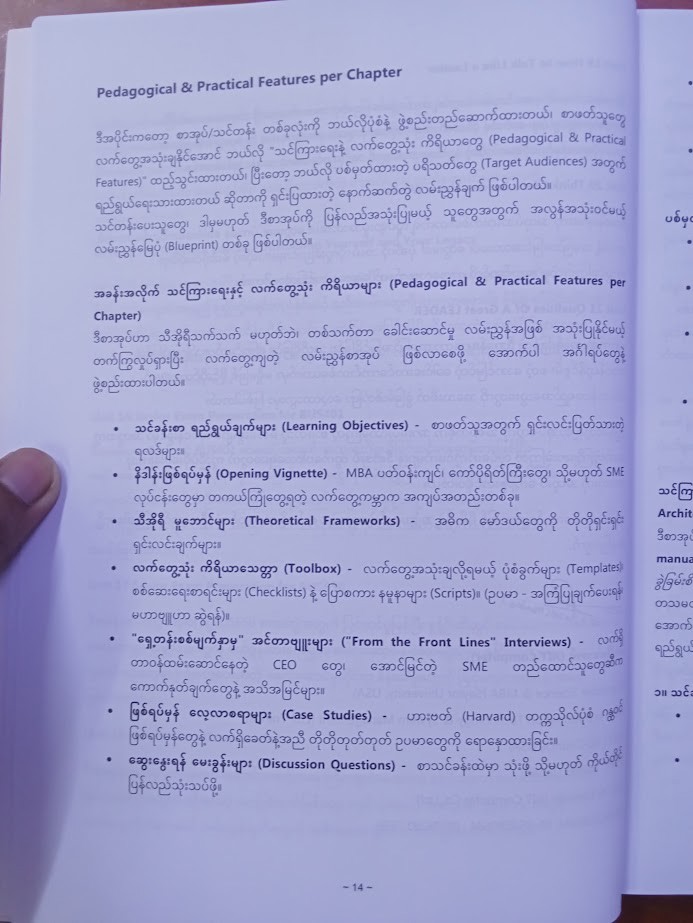 Pedagogical & Practical Features per Chapter
ဒီအပိုင်းကတော့ စာအုပ်/သင်တန်း တစ်ခုလုံးကို ဘယ်လိုပုံစံနဲ့ ဖွဲ့စည်းတည်ဆောက်ထားတယ်၊ စာဖတ်သူတွေ
လက်တွေ့အသုံးချနိုင်အောင် ဘယ်လို "သင်ကြားရေးနဲ့ လက်တွေ့သုံး ကိရိယာတွေ (Pedagogical & Practical
Features)" ထည့်သွင်းထားတယ်၊ ပြီးတော့ ဘယ်လို ပစ်မှတ်ထားတဲ့ ပရိသတ်တွေ (Target Audiences) အတွက်
ရည်ရွယ်ရေးသားထားတယ် ဆိုတာကို ရှင်းပြထားတဲ့ နောက်ဆက်တွဲ လမ်းညွှန်ချက် ဖြစ်ပါတယ်။
သင်တန်းပေးသူတွေ၊ ဒါမှမဟုတ် ဒီစာအုပ်ကို ပြန်လည်အသုံးပြုမယ့် သူတွေအတွက် အလွန်အသုံးဝင်မယ့်
လမ်းညွှန်မြေပုံ (Blueprint) တစ်ခု ဖြစ်ပါတယ်။
အခန်းအလိုက် သင်ကြားရေးနှင့် လက်တွေ့သုံး ကိရိယာများ (Pedagogical & Practical Features per
Chapter)
ဒီစာအုပ်ဟာ သီအိုရီသက်သက် မဟုတ်ဘဲ၊ တစ်သက်တာ ခေါင်းဆောင်မှု လမ်းညွှန်အဖြစ် အသုံးပြုနိုင်မယ့်
တက်ကြွလှုပ်ရှားပြီး လက်တွေ့ကျတဲ့ လမ်းညွှန်စာအုပ် ဖြစ်လာစေဖို့ အောက်ပါ အင်္ဂါရပ်တွေနဲ့
ဖွဲ့စည်းထားပါတယ်။
• သင်ခန်းစာ ရည်ရွယ်ချက်များ (Learning Objectives) - စာဖတ်သူအတွက် ရှင်းလင်းပြတ်သားတဲ့
ရလဒ်များ။
• နိဒါန်းဖြစ်ရပ်မှန် (Opening Vignette) - MBA ပတ်ဝန်းကျင်၊ ကော်ပိုရိတ်ကြီးတွေ၊ သို့မဟုတ် SME
လုပ်ငန်းတွေမှာ တကယ်ကြုံတွေ့ရတဲ့ လက်တွေ့ကမ္ဘာက အကျပ်အတည်းတစ်ခု။
• သီအိုရီ မူဘောင်များ (Theoretical Frameworks) - အဓိက မော်ဒယ်တွေကို တိုတိုရှင်းရှင်း
ရှင်းလင်းချက်များ။
• လက်တွေ့သုံး ကိရိယာသေတ္တာ (Toolbox) - လက်တွေ့အသုံးချလို့ရမယ့် ပုံစံခွက်များ (Templates)၊
စစ်ဆေးရေးစာရင်းများ (Checklists) နဲ့ ပြောစကား နမူနာများ (Scripts)။ (ဥပမာ - အကြံပြုချက်ပေးရန်၊
မဟာဗျူဟာ ဆွဲရန်)။
• "ရှေ့တန်းစစ်မျက်နှာမှ" အင်တာဗျူးများ ("From the Front Lines" Interviews) - လက်ရှိ
တာဝန်ထမ်းဆောင်နေတဲ့ CEO တွေ၊ အောင်မြင်တဲ့ SME တည်ထောင်သူတွေဆီက
ကောက်နုတ်ချက်တွေနဲ့ အသိအမြင်များ။
• ဖြစ်ရပ်မှန် လေ့လာစရာများ (Case Studies) - ဟားဗတ် (Harvard) တက္ကသိုလ်ပုံစံ ဂန္ထဝင်
ဖြစ်ရပ်မှန်တွေနဲ့ လက်ရှိခေတ်နဲ့အညီ တိုတိုတုတ်တုတ် ဥပမာတွေကို ရောနှောထားခြင်း။
• ဆွေးနွေးရန် မေးခွန်းများ (Discussion Questions) - စာသင်ခန်းထဲမှာ သုံးဖို့ သို့မဟုတ် ကိုယ်တိုင်
ပြန်လည်သုံးသပ်ဖို့။
~ 14 ~
သင်ကြ
Archit
ဒီစာအုပ်
manua
အောက်
ရည်ရွယ်
၁။ သင်